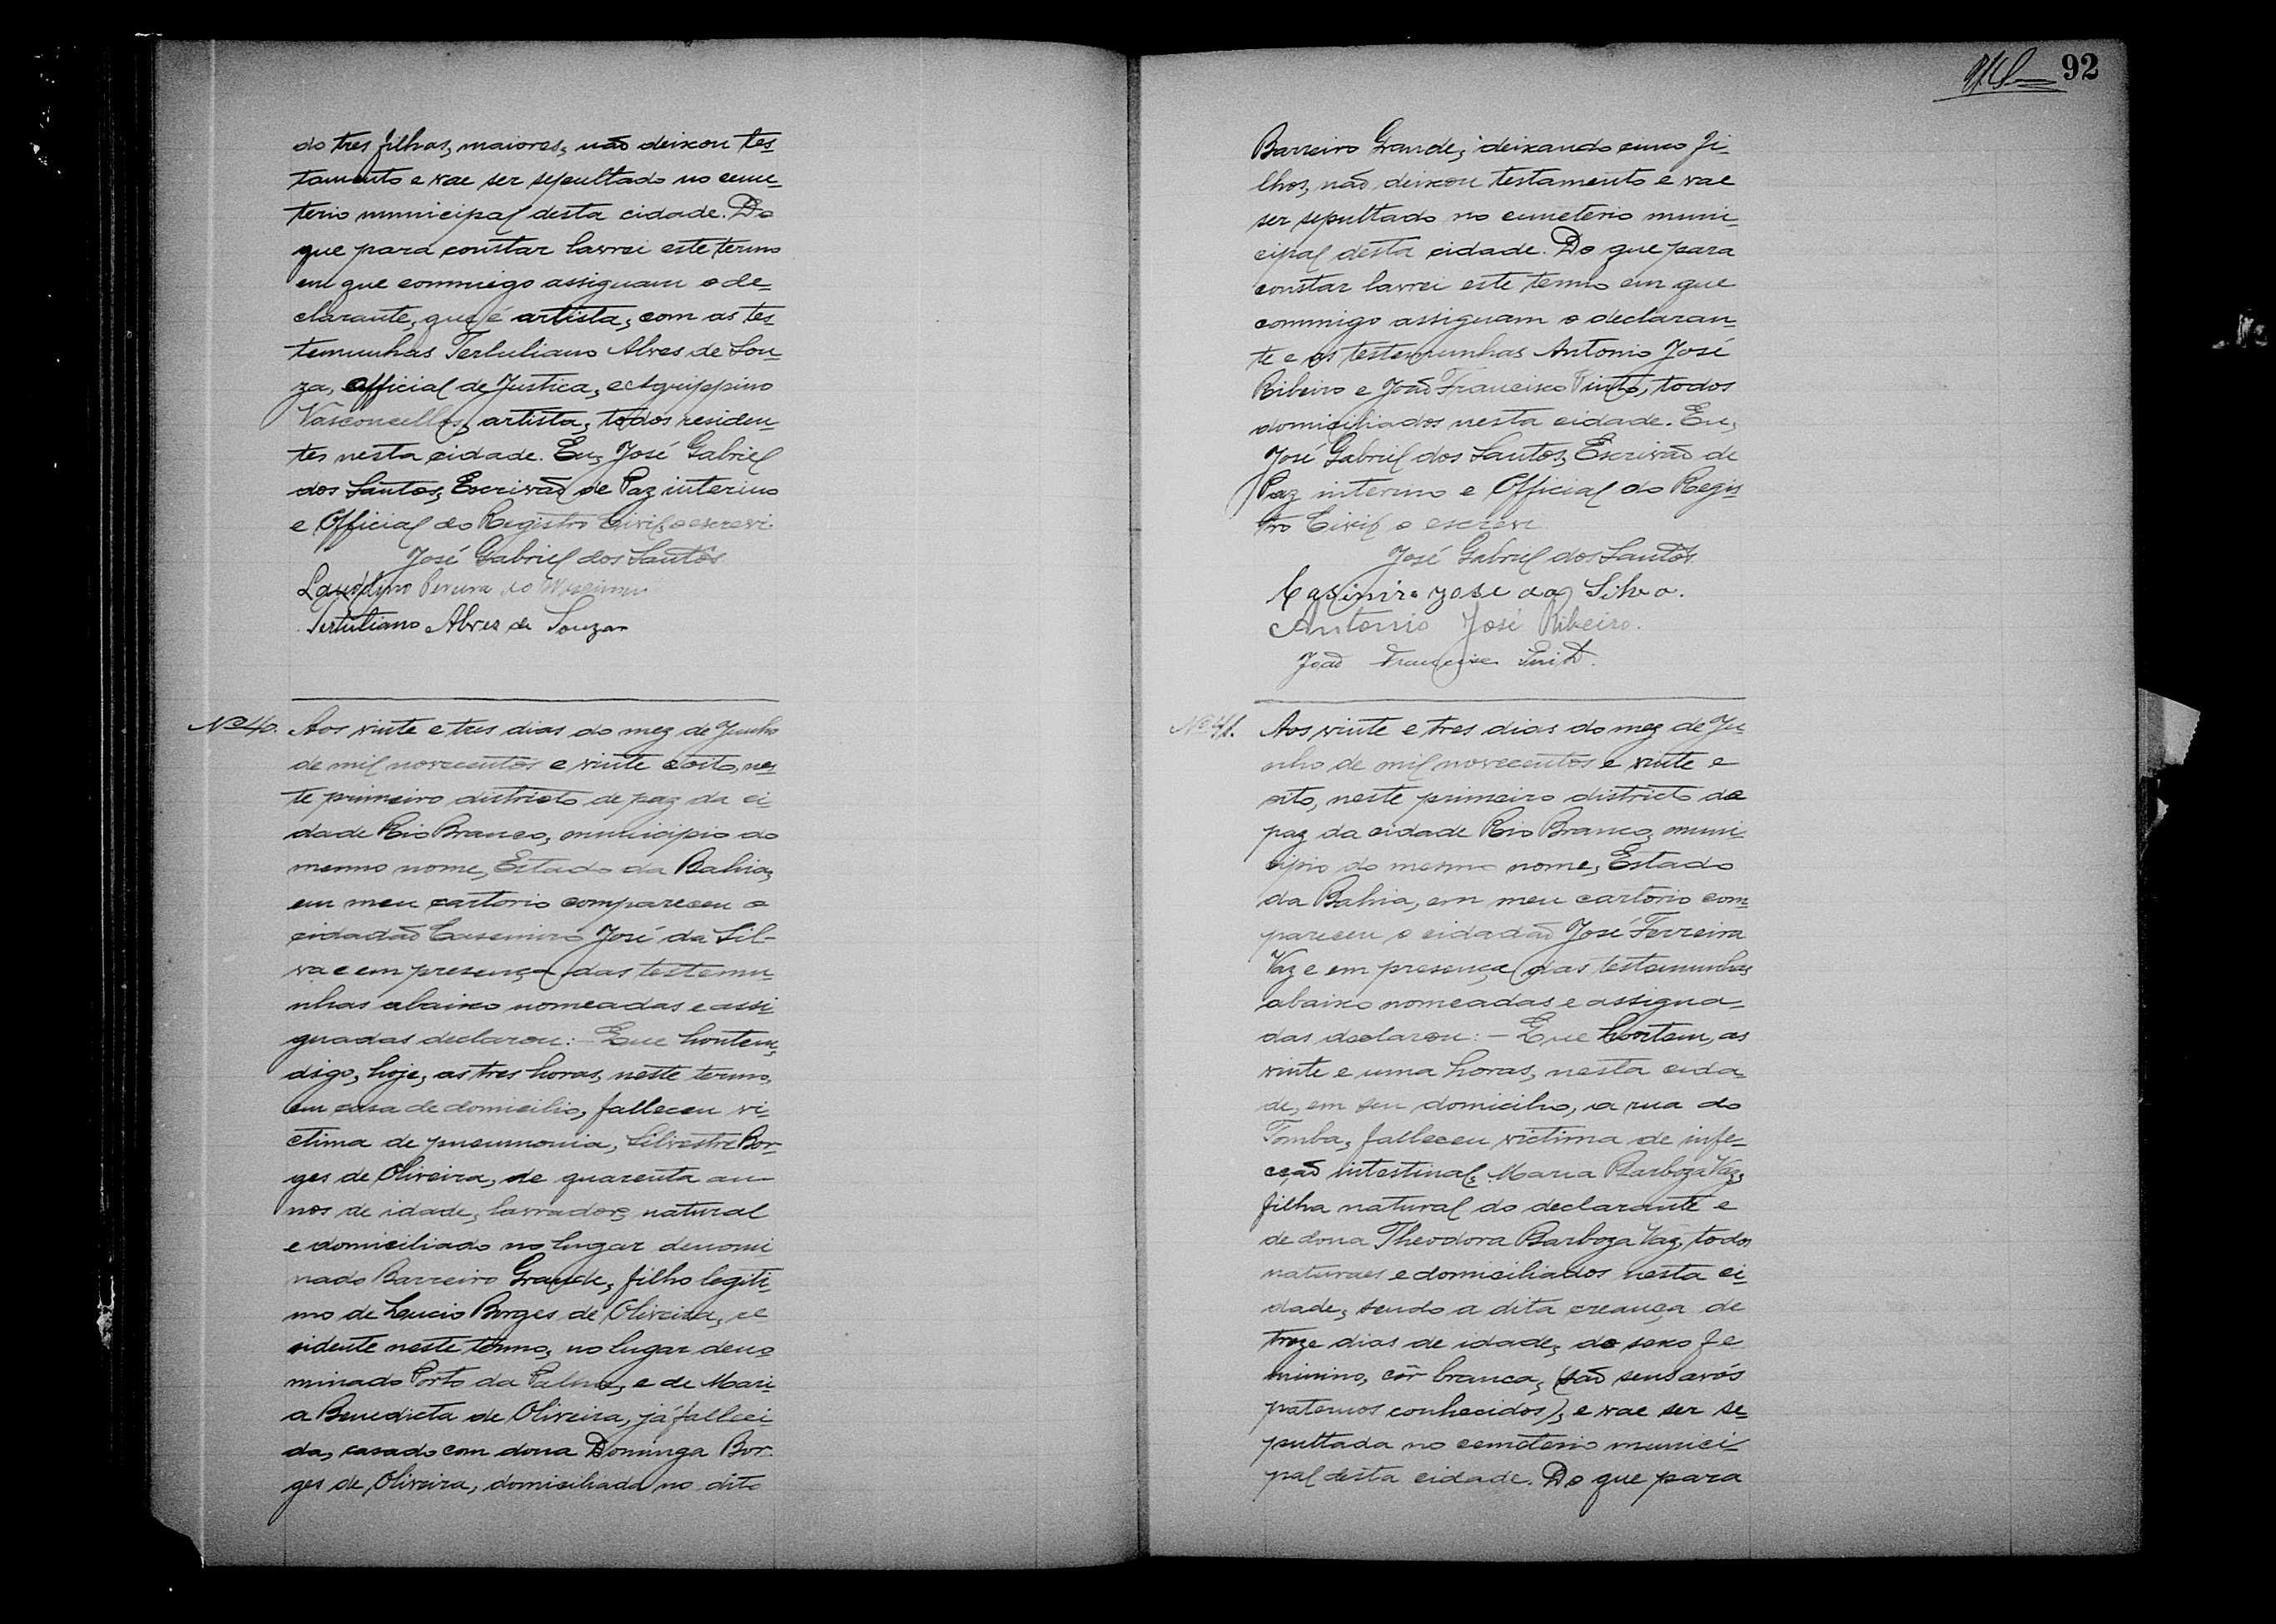 do tres filhas, maiores, não deixou tes-
tamento e vae ser sepultado no ceme-
terio municipal desta cidade. Do
que para constar lavrei este termo
em que commigo assignam o de-
clarante, que é artista, com as tes-
temunhas Tertuliano Alves de Sou-
za, official de Justica, e Agrippino
Vasconcellos, artista, todos residen-
tes nesta cidade. Eu, José Gabriel
dos Santos, Escrivão de Paz interino
e Official do Registro Civil o escrevi.
José Gabriel dos Santos
Pereira do
Tertuliano Alves de Souza
Nº 40. Aos vinte e tres dias do mez de Junho
de mil novecentos e vinte e oito, nes-
te primeiro districto de paz da ci-
dade Rio Branco, municipio do
mesmo nome, Estado da Bahia,
em meu cartorio compareceu o
cidadão Casemiro José da Sil-
va e em presença das testemu-
nhas abaixo nomeadas e assi-
gnadas declarou: - Que hontem,
digo, hoje, as tres horas, neste termo,
em casa de domicilio, falleceu vi-
ctima de pneumonia, Silvestre Bor-
ges de Oliveira, de quarenta an-
nos de idade, lavrador, natural
e domiciliado no lugar denomi-
nado Barreiro Grande, filho legiti-
mo de Leucio Borges de Oliveira, re
sidente neste termo, no lugar deno
minado Porto da Palma, e de Mari-
a Benedicta de Oliveira, já falleci
da, casado com dona Dominga Bor-
ges de Oliveira, domiciliada no dito
92
Barreiro Grande, deixando cinco fi-
lhos, não deixou testamento e vae
ser sepultado no cemeterio muni-
cipal desta cidade. Do que para
constar lavrei este termo em que
commigo assignam o declaran-
te e as testemunhas Antonio José
Ribeiro e João Francisco Pinto, todos
domiciliados nesta cidade. Eu,
José Gabriel dos Santos, Escrivão de
Paz interino e Official do Regis
tro Civil o escrevi
José Gabriel dos Santos.
Casimiro jose da Silva.
Antonio José Ribeiro.
João Francisco
Nº 41. Aos vinte e tres dias do mez de Ju-
nho de mil novecentos e vinte e
oito, neste primeiro districto de
paz da cidade Rio Branco, muni-
cipio do mesmo nome, Estado
da Bahia, em meu cartorio com-
pareceu o cidadão José Ferreira
Vaz e em presença das testemunhas
abaixo nomeadas e assigna-
das declarou: - Que hontem, as
vinte e uma horas, nesta cida-
de, em seu domicilio, a rua do
Tomba, falleceu victima de infe-
cção intestinal, Maria Barboza Vaz,
filha natural do declarante e
de dona Theodora Barboza Vaz, todos
naturaes e domiciliados nesta ci-
dade, sendo a dita creança de
treze dias de idade, do sexo fe
minino, côr branca, (são seus avós
paternos conhecidos), e vae ser se-
pultada no cemeterio munici-
pal desta cidade. Do que para